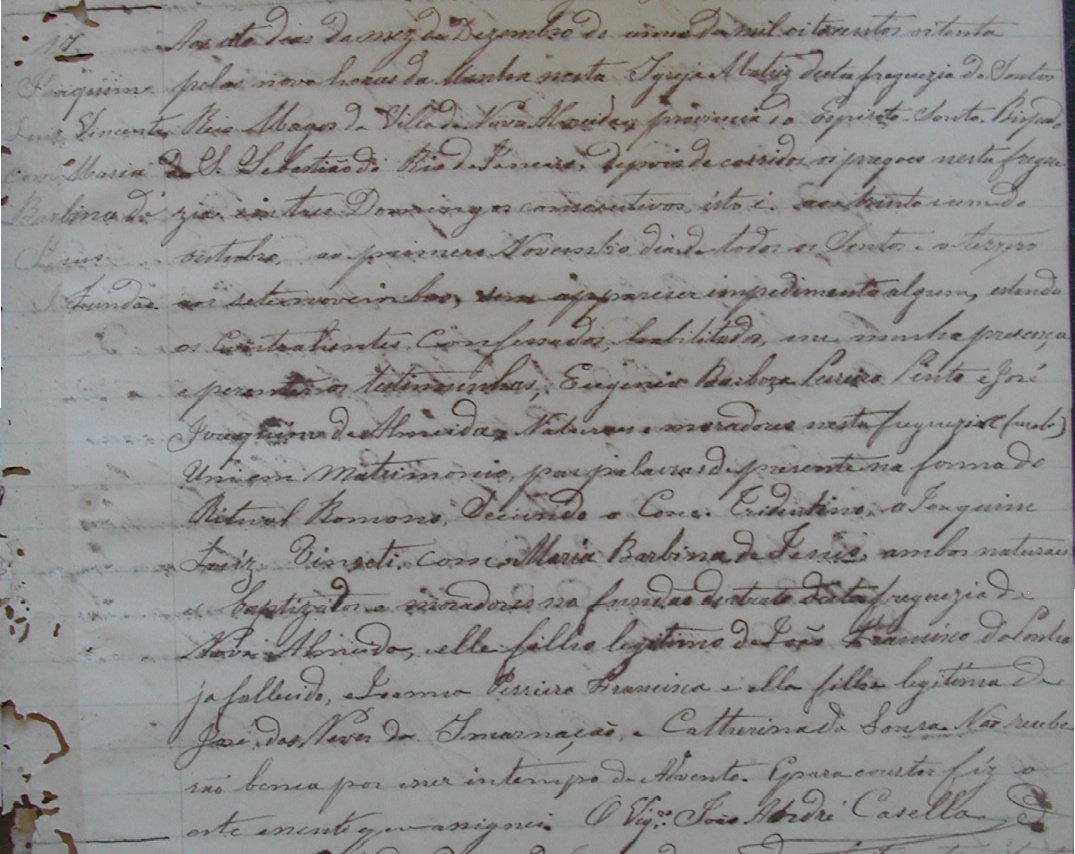 17
Joaquim
Luiz Vincente
com Maria
Barbina de
Jesus
Fundão
Aos oito dias do mez de Dezembro do anno de mil oitocentos oitenta
pelas nove horas da Manha nesta Igreja Matriz desta freguezia de Santos
Reis Magos da Villa de Nova Almeida, provincia do Espirito-Santo. Bispado
de S. Sebastião do Rio de Janeiro, depois de corridos os pregoes nesta fregue
zia, em tres Domingos consecutivos, isto é. aos trinta e um do
outubro, ao primero Novembro dia de todos os Santos e o terzero
aos sete novembro, sem apparecer impedimento algum, estando
os Contrahentes Confessados, habilitados, em minha presença
e perante as testimunhas, Eugenio Barboza Pereira Pinto e José
Joaquim de Almeida, Naturaes e moradores nesta freguezia
Uniem Matrimonio, por palavras de presente na forma do
Ritual Romano, Secundo o Conc. Tridentino, a Joaquim
Luiz Vinseti, com Maria Barbina de Jesus, ambos naturaes
e baptizados e moradores no fundão destrato desta freguezia de
Nova Almeida, elle filho legitimo de João Francisco da Penha
ja fallecido, e Joanna Perriera Francisca e ella filha legitima de
José das Neves da Incarnação, e Catherina de Souza. Não recebe
rão bença por eser in tempo de Advento. E para constar fiz o
este que assignei. O Vigr.º João André Casella